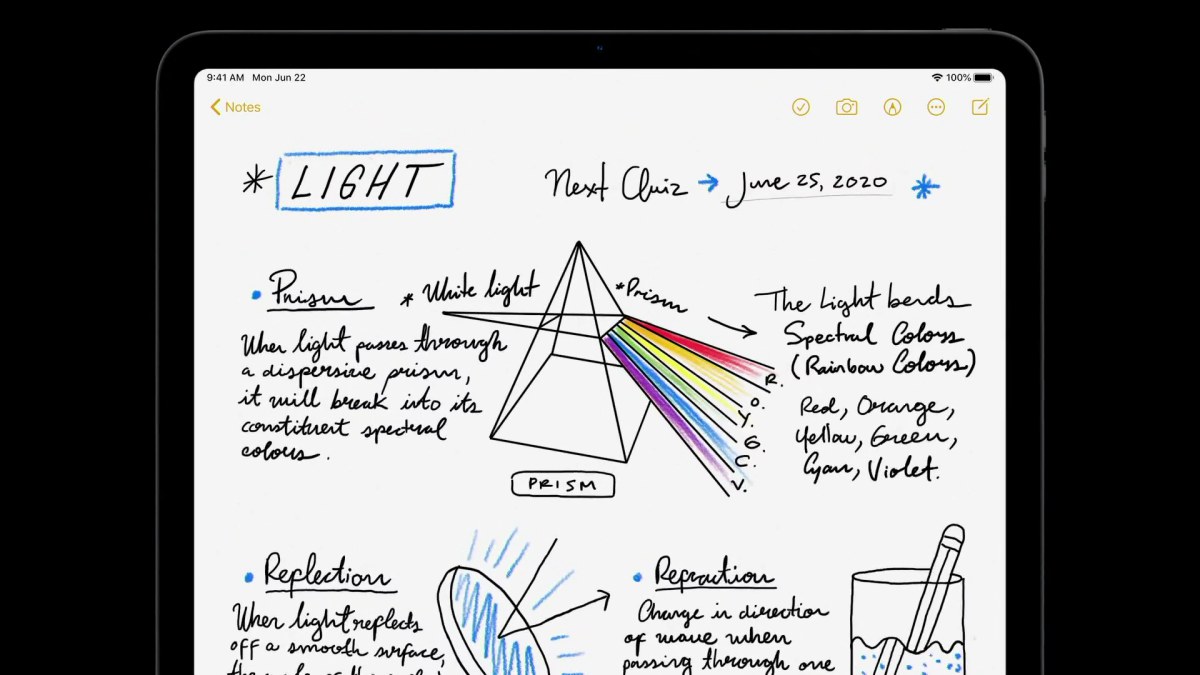 9:41 AM Mon Jun 22
100%
Notes
* LIGHT
Next Quiz → June 25, 2020 *
• Prism
When light passes through
a dispersive prism,
it will break into its
constituent spectral
colours.
* White light
*Prism
R.
O.
Y.
G.
C.
V.
PRISM
The Light bends
Spectral Colors
(Rainbow Colors)
Red, Orange,
Yellow, Green,
Cyan, Violet.
• Reflection
When light reflects
off a smooth surface,
• Refraction
Change in direction
of wave when
passing through one